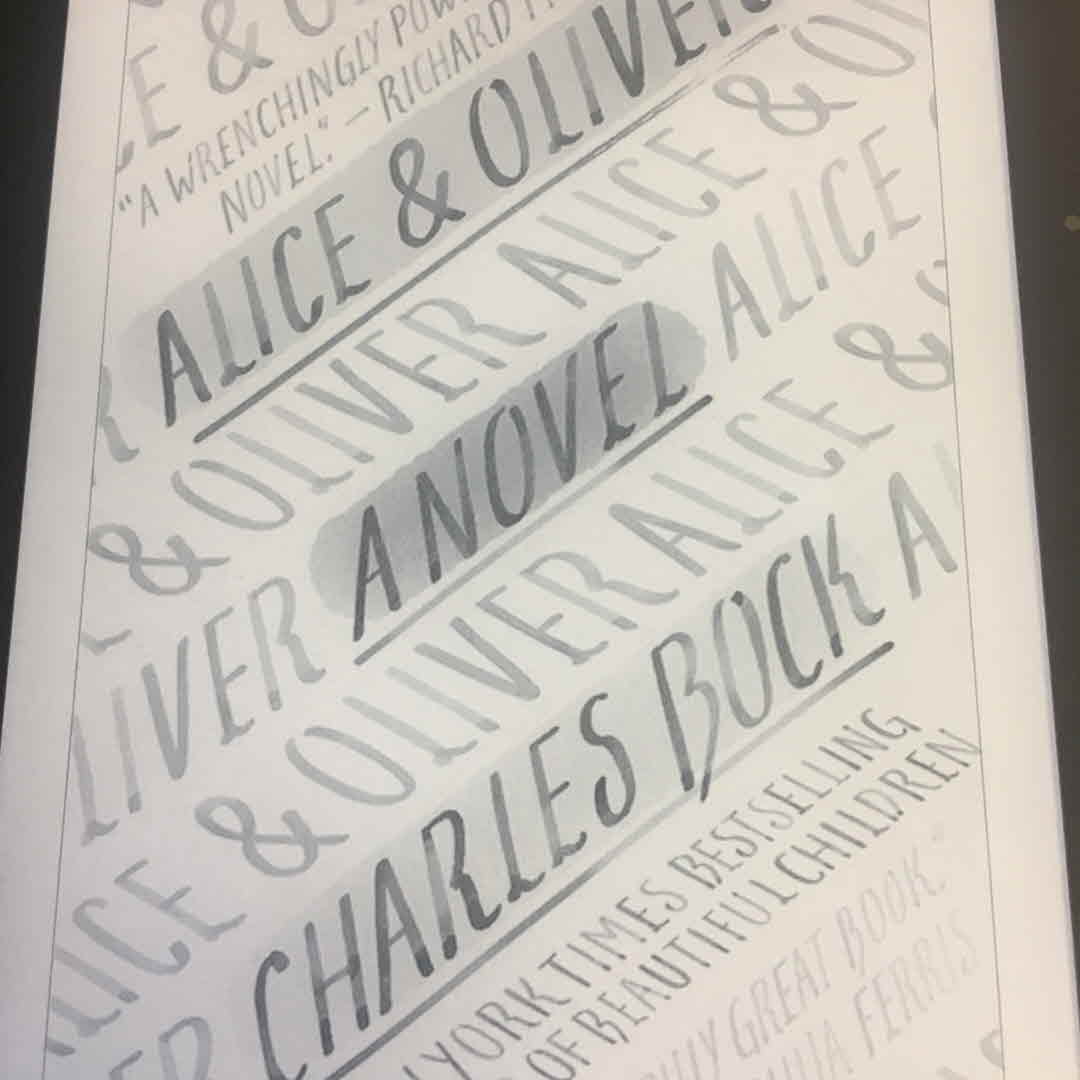 E & O
"A WRENCHINGLY POW
NOVEL." — RICHARD
ALICE & OLIVER
R & OLIVER ALICE & OL
LIVER A NOVEL ALICE &
ALICE & OLIVER ALICE &
CHARLES BOCK A
YORK TIMES BESTSELLING
OF BEAUTIFUL CHILDREN
GREAT BOOK."
FERRIS